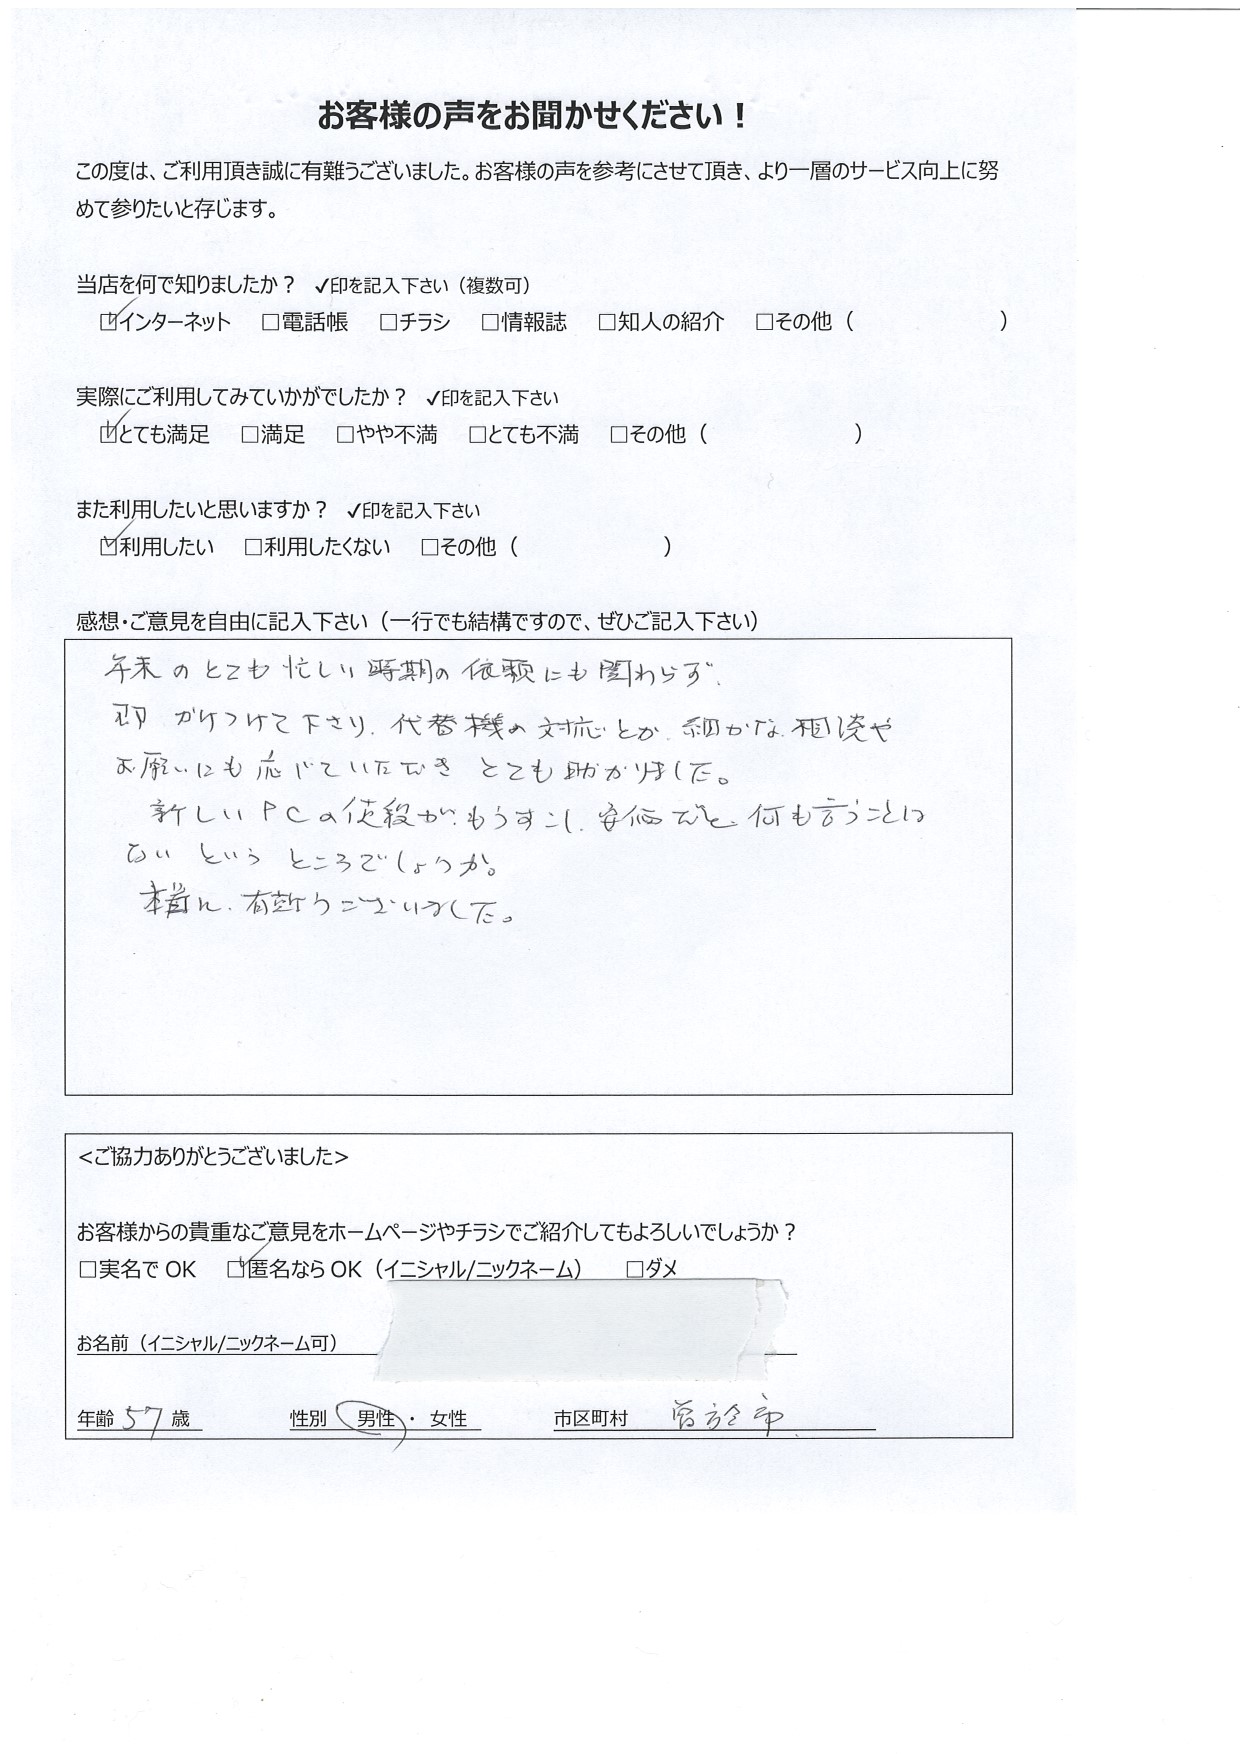 お客様の声をお聞かせください！
この度は、ご利用頂き誠に有難うございました。お客様の声を参考にさせて頂き、より一層のサービス向上に努
めて参りたいと存じます。
当店を何で知りましたか？ ✓印を記入下さい（複数可）
☑インターネット □電話帳 □チラシ □情報誌 □知人の紹介 □その他（ ）
実際にご利用してみていかがでしたか？ ✓印を記入下さい
☑とても満足 □満足 □やや不満 □とても不満 □その他（ ）
また利用したいと思いますか？ ✓印を記入下さい
☑利用したい □利用したくない □その他（ ）
感想・ご意見を自由に記入下さい（一行でも結構ですので、ぜひご記入下さい）
年末のとても忙しい時期の依頼にも関わらず、
即 かけつけて下さり、代替機の対応とか、細かな相談や
お願いにも応じていただき とても助かりました。
新しいPCの値段が、もうすこし、安価だと、何も言うことは
ない という ところでしょうか。
有難うございました。
<ご協力ありがとうございました>
お客様からの貴重なご意見をホームページやチラシでご紹介してもよろしいでしょうか？
□実名でOK ☑匿名ならOK（イニシャル/ニックネーム） □ダメ
お名前（イニシャル/ニックネーム可）
年齢 57 歳 性別 男性 ・ 女性 市区町村 曽於市